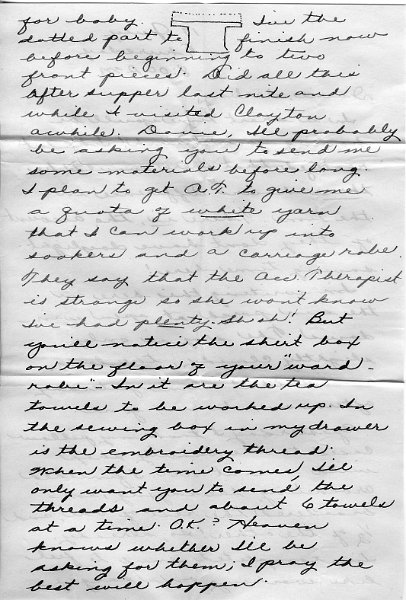 for baby. I've the
dotted part to finish now
before beginning to two
front pieces. Did all this
after supper last nite and
while I visited Clayton
awhile. Dovie, I'll probably
be asking you to send me
some materials before long.
I plan to get A.T. to give me
a quota of white yarn
that I can work up into
soakers and a carriage robe.
They say that the Occ. Therapist
is strange so she wont know
I've had plenty. Sh sh! But
you'll notice the shirt box
on the floor of your "ward-
robe" - In it are the tea
towels to be worked up. In
the sewing box in my drawer
is the embroidery thread.
When the time comes, I'll
only want you to send the
threads and about 6 towels
at a time. O.K.? Heaven
knows whether I'll be
asking for them; I pray the
best will happen.